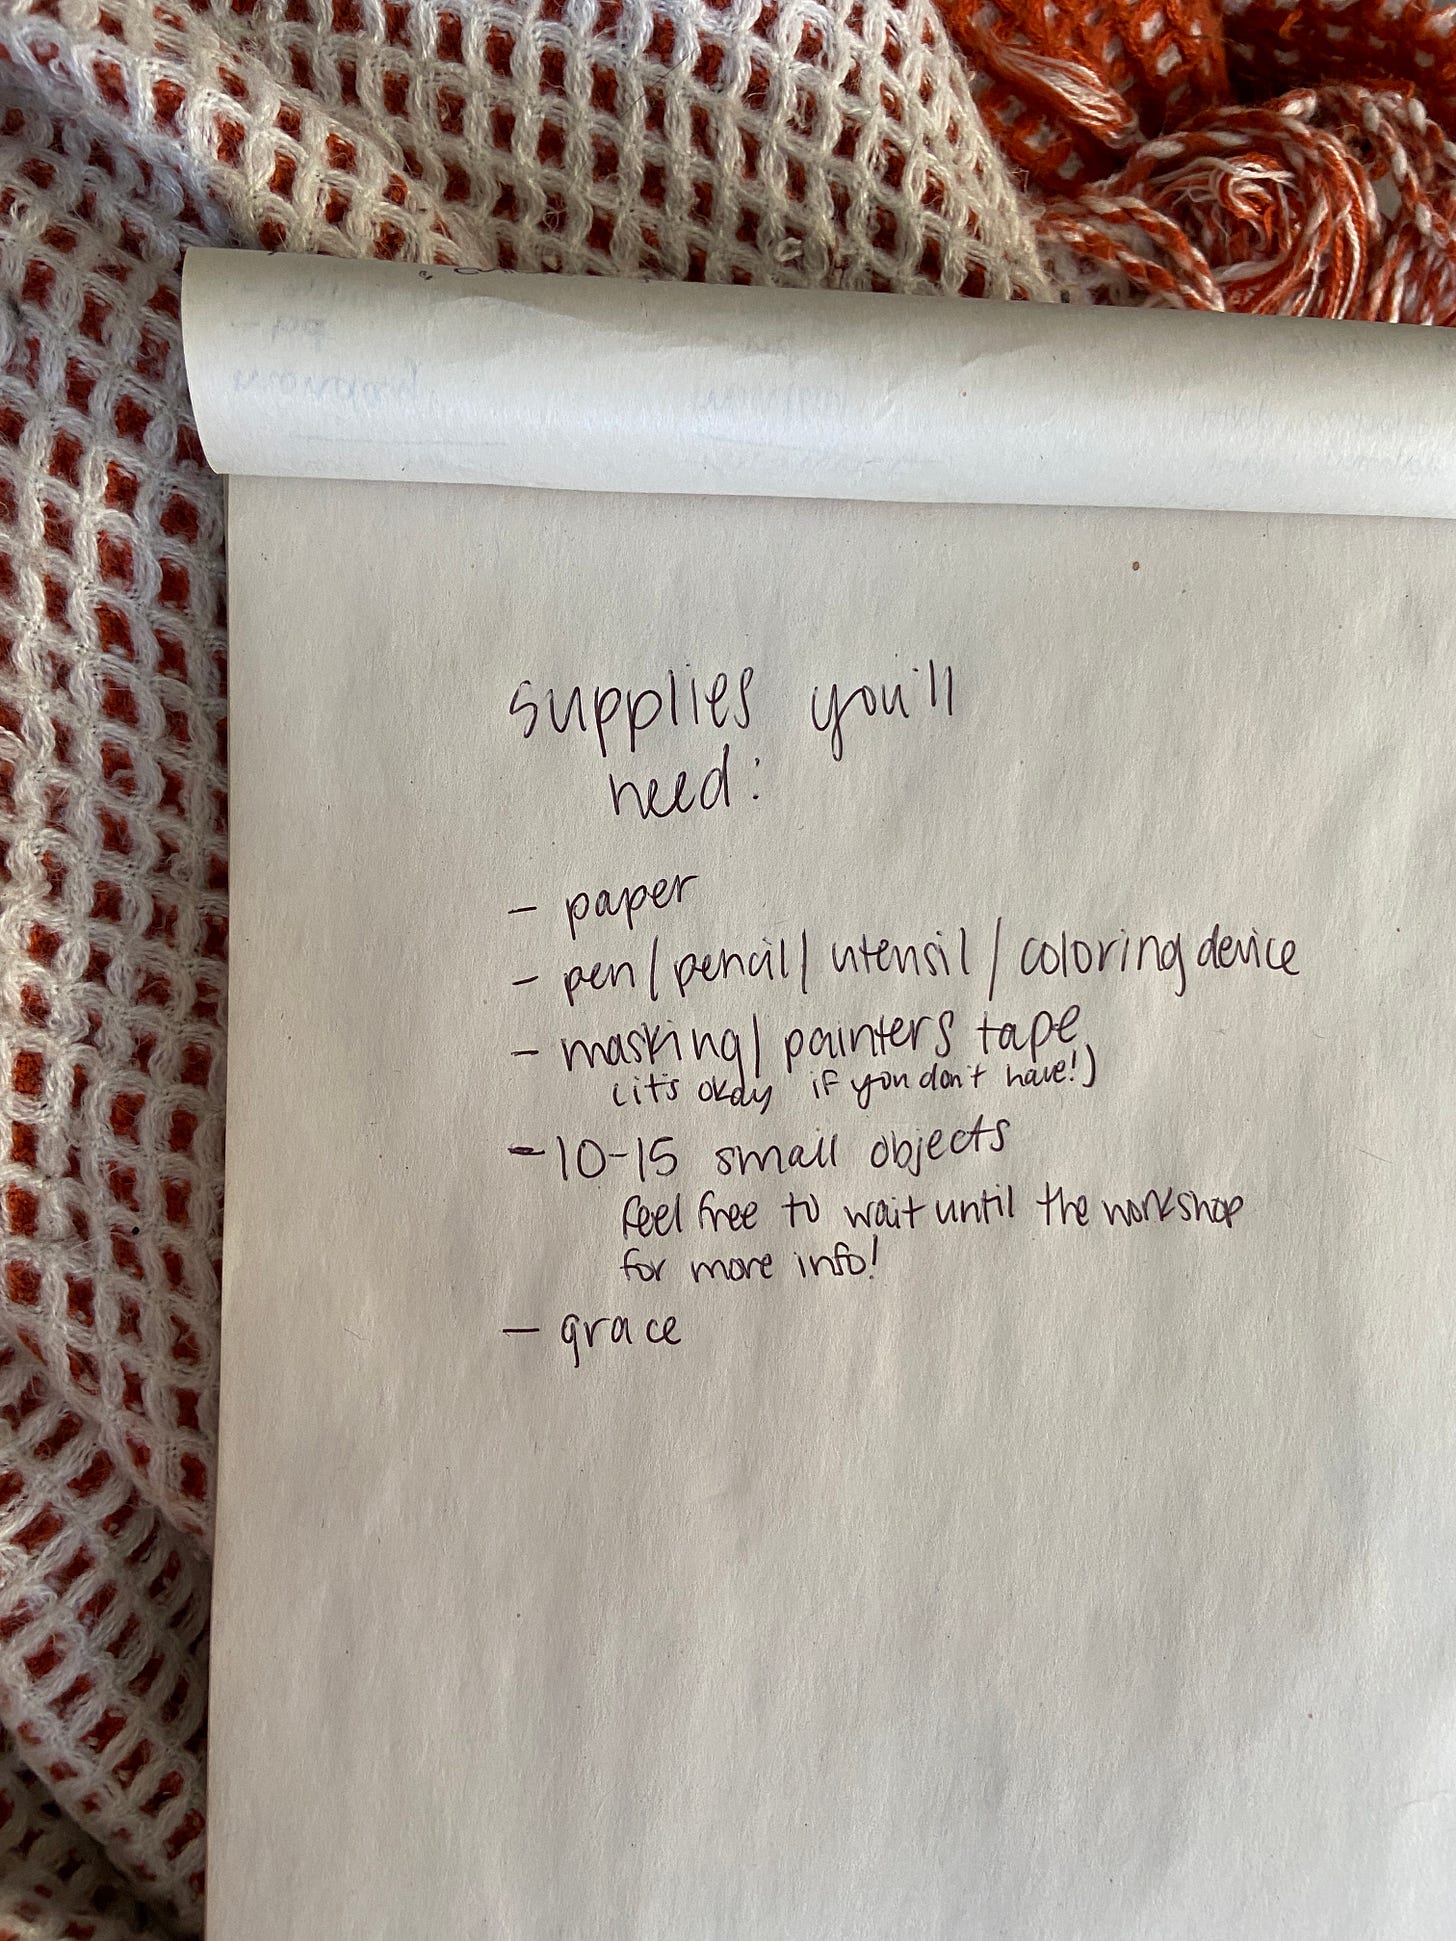 supplies you'll
need:
- paper
- pen/pencil/utensil/coloring device
- masking/painters tape
(it's okay if you don't have!)
- 10-15 small objects
feel free to wait until the workshop
for more info!
- grace